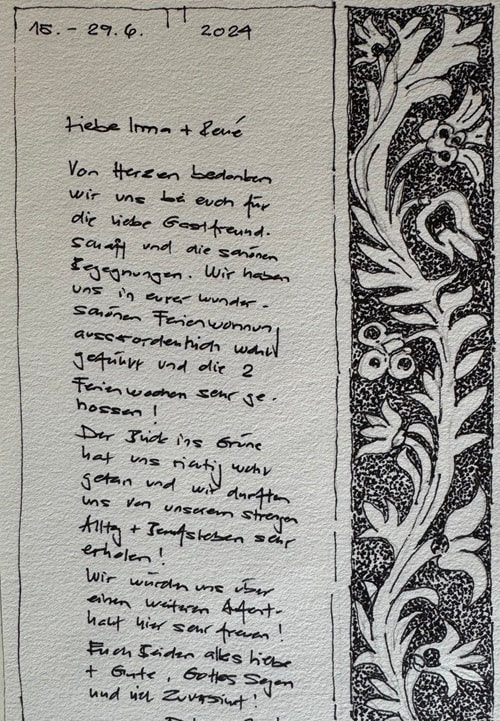 15. - 29.6. 2024
Liebe Irma + René
Von Herzen bedanken
wir uns bei euch für
die liebe Gastfreund-
schaft und die schönen
Begegnungen. Wir haben
uns in eurer wunder-
schönen Ferienwohnung
ausserordentlich wohl
gefühlt und die 2
Ferienwochen sehr ge-
nossen!
Der Blick ins Grüne
hat uns richtig wohl
getan und wir durften
uns von unserem strengen
Alltag + Berufsleben sehr
erholen!
Wir würden uns über
einen weiteren Aufent-
halt hier sehr freuen!
Euch Beiden alles Liebe
+ Gute, Gottes Segen
und viel Zuversicht!